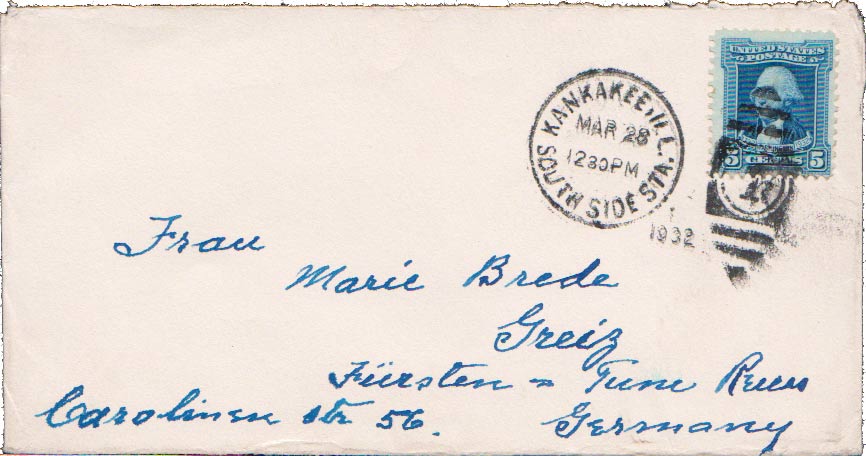 UNITED STATES
POSTAGE
5 CENTS 5
KANKAKEE, ILL.
MAR 28
1230PM
SOUTH SIDE STA.
1932
Frau
Marie Brede
Greiz
Fürsten = Tum Reuss
Carolinen str 56.
Germany